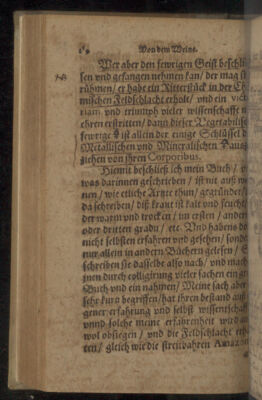 Von dem Weine.
Wer aber den fewrigen Geist beschli
sen vnd gefangen nehmen kan / der mag si
rühmen / er habe ein Ritterstück in der Ch
mischen Feldschlacht erholt / vnd ein vict
riam vnd triumph vieler wissenschafft
ehren erstritten / dann dieser Vegetabilis
fewrige ist allein der einige Schlüssel d
Metallischen vnd Mineralischen
ziehen von ihren Corporibus.
Hiemit beschließ ich mein Buch / v
was darinnen geschrieben / ist nit auff
nen / wie etliche Artzte thun / gegründet /
da schreiben / diß kraut ist kalt vnd feucht
der warm vnd trocken / im ersten / andern
oder dritten gradu / etc. Vnd habens do
nicht selbsten erfahren vnd gesehen / sonde
nur allein in andern Büchern gelesen / S
schreiben sie dasselbe also nach / vnd mach
nen durch colligirung vieler sachen ein gr
Buch vnd ein nahmen / Meine sach aber
sehr kurtz begriffen / hat ihren bestand auß
gener erfahrung vnd selbst wissenschafft
vnnd solche meine erfahrenheit wird
wol obsiegen / vnd die Feldschlacht erh
ten / gleich wie die streitbahren Amazon